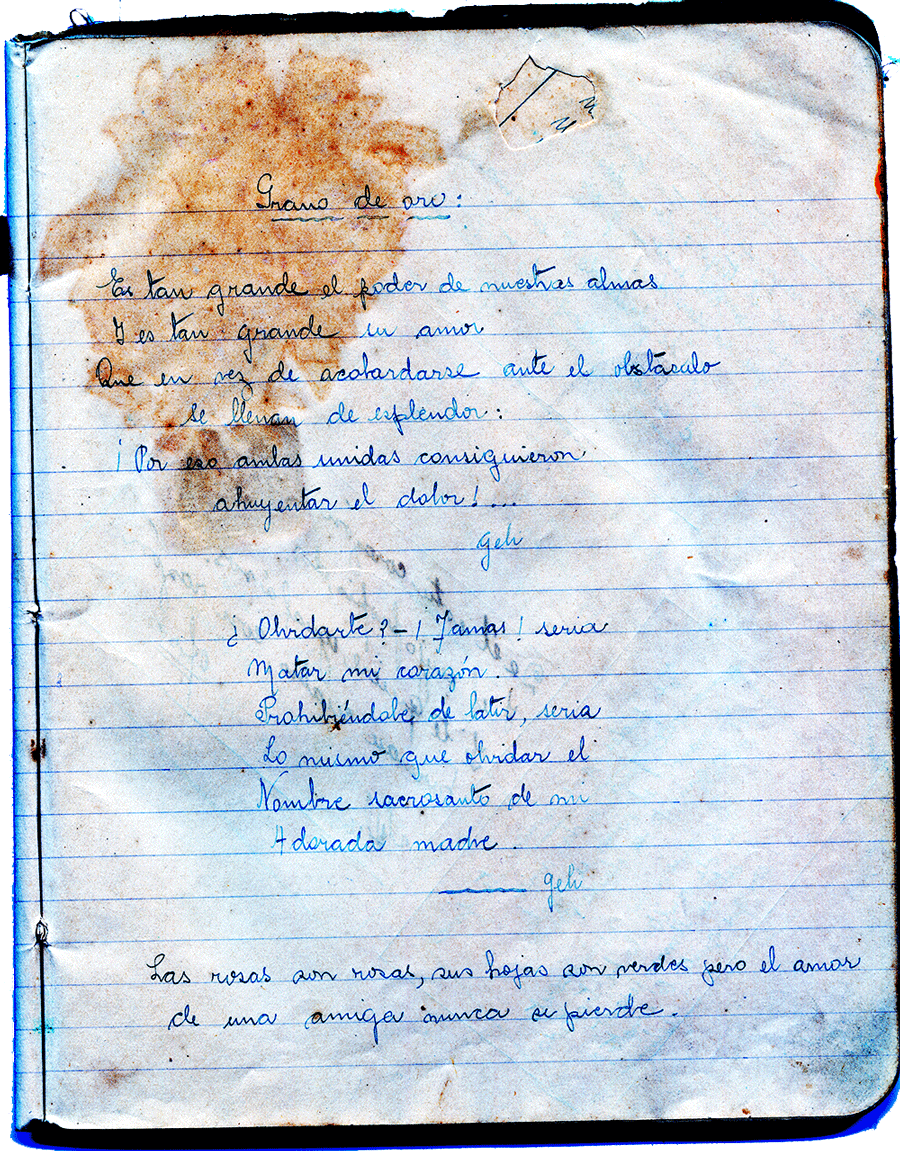 Grano de oro:
Es tan grande el poder de nuestras almas
Y es tan grande su amor
Que en vez de acobardarse ante el obstáculo
se llenan de esplendor:
¡Por eso ambas unidas consiguieron
ahuyentar el dolor!...
Geli
¿Olvidarte?-¡Jamas! seria
Matar mi corazón.
Prohibiéndole, de latir, seria
Lo mismo que olvidar el
Nombre sacrosanto de mi
Adorada madre.
Geli
Las rosas son rosas, sus hojas son verdes pero el amor
de una amiga nunca se pierde.